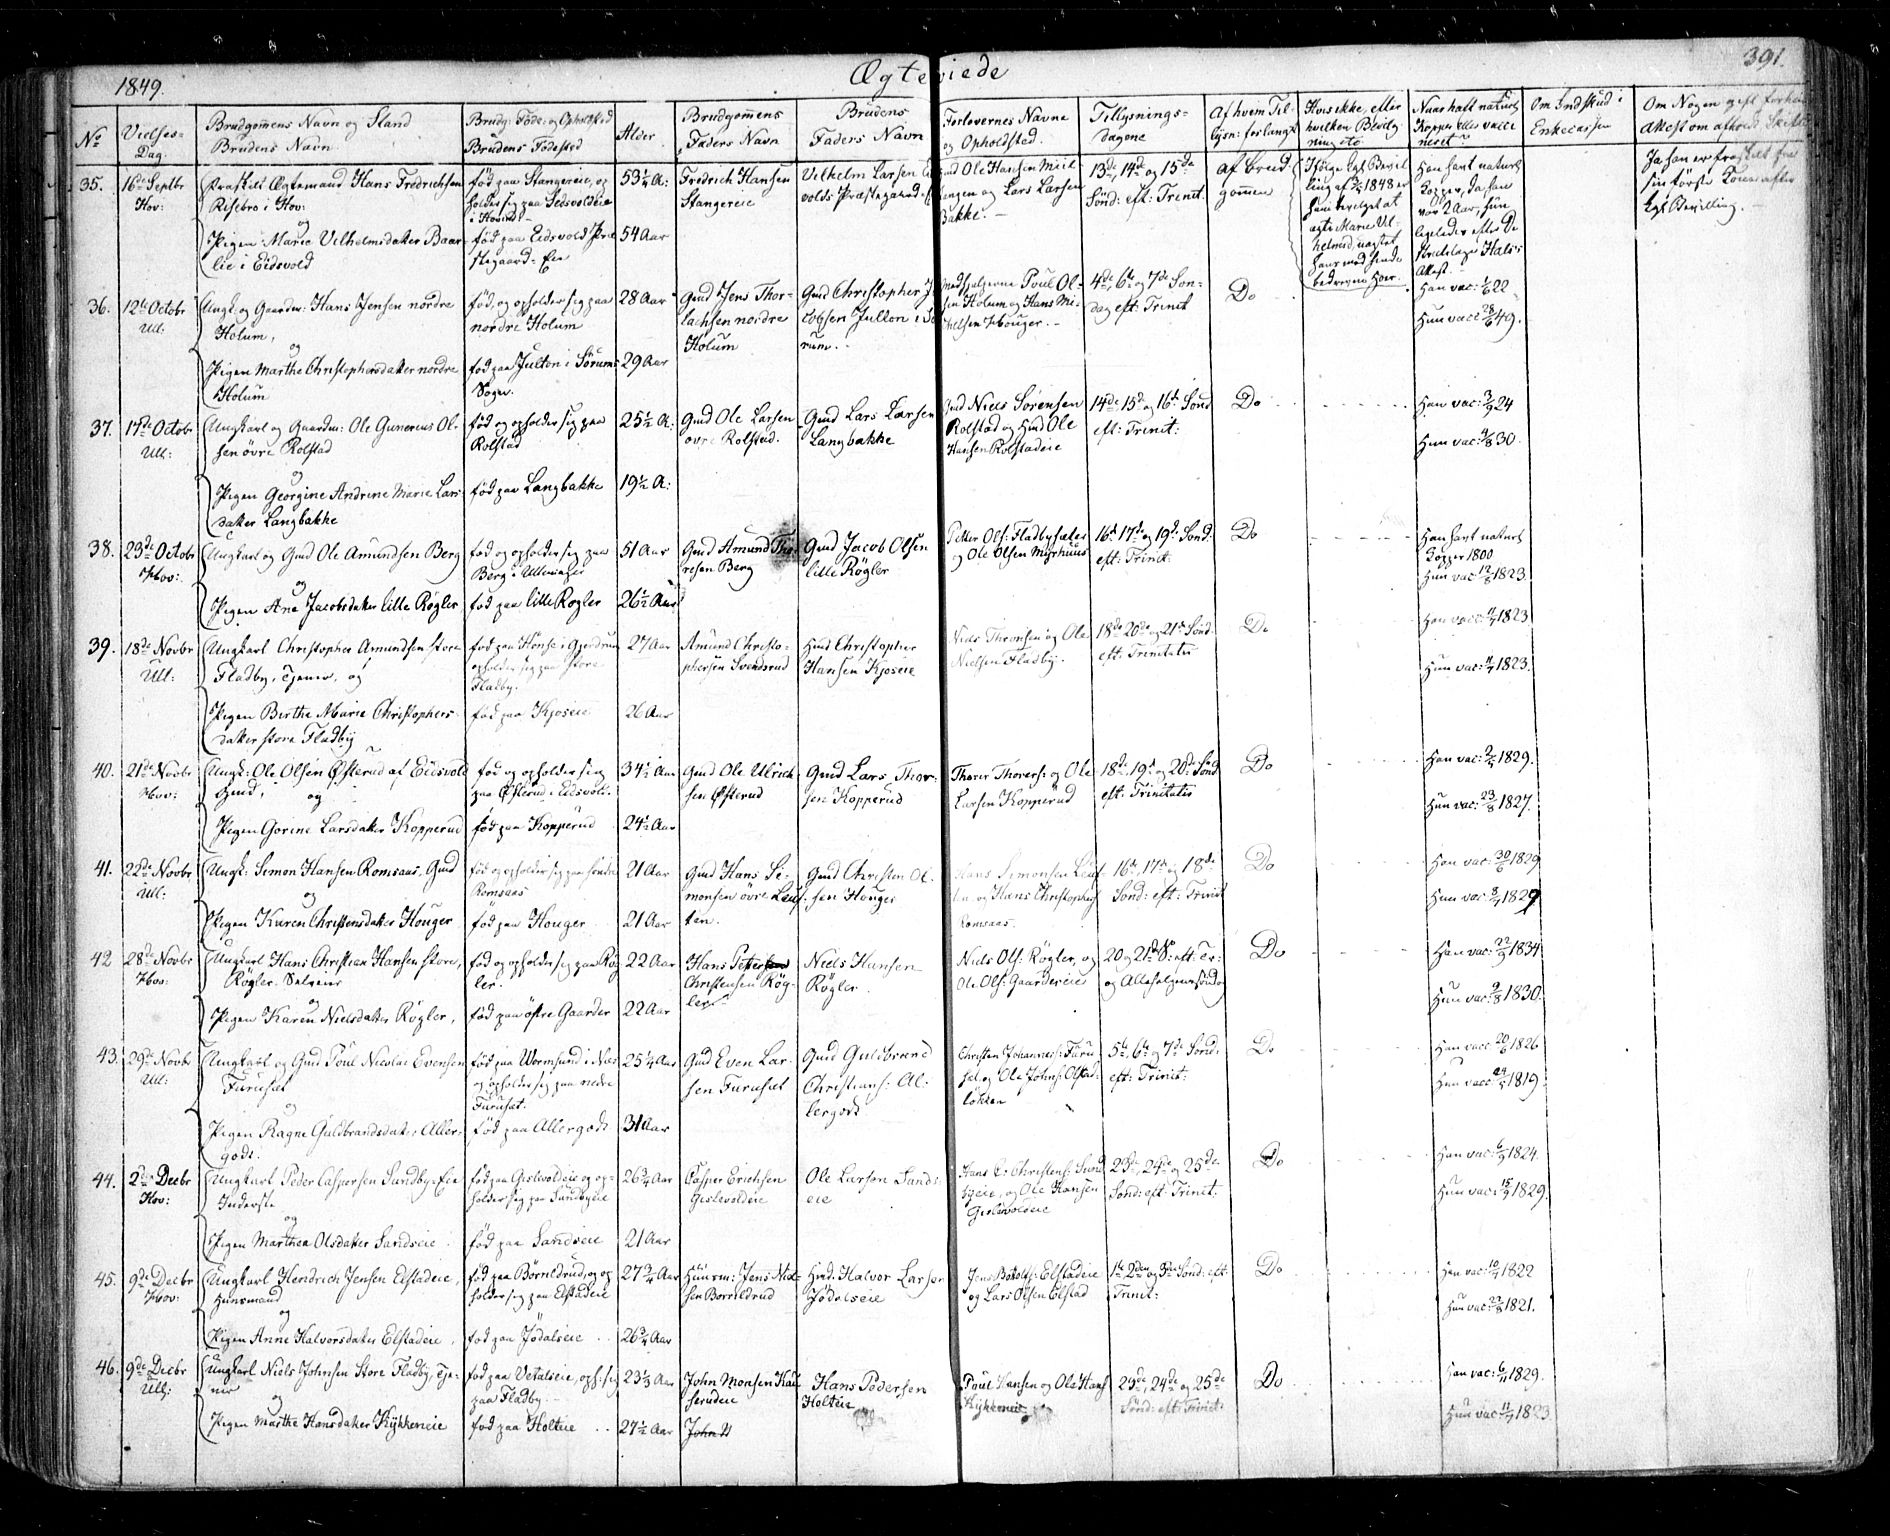 1849.
Ægteviede
391.
No
Vielses-Dag.
Brudgommens Navn og Stand
Brudens Navn
Brudg: Føde- og Opholdsted
Brudens Fødested
Alder
Brudgommens Faders Navn
Brudens Faders Navn
Forlovernes Navne og Opholdsted.
Tillysnings-dagene
Af hvem Til-lysn: forlangt
Hvis ikke, efter hvilken Bevilg-ning
Naar havt naturl: Kopper eller vaccineret
Om Indskud i Enkecassen
35.
16de Septbr
Hov:
Fraskilt Ægtemand Hans Fredrichsen
Risebro i Hov:
og
Pigen Marie Vilhelmsdatter Baar-
lie i Eidsvold
født paa Stangereie, og
holder sig paa
født paa Eidsvold Præ-
stegaards Eie
53¼ A:
54 Aar
Fredrich Hansen
Stangereie
Vilhelm Larsen
volds Præstegaards
Ole Hansen
og Lars Larsen
Bakke. -
13de, 14de og 15de
Sønd: eft: Trinit.
af Brud-
gommen
Ifølge Kgl. Bevil
1848 er
Han havt naturl:
Kopper, da han
var 2 Aar, hun
ligeledes efter
Attest. -
Ja han er fraskilt fra
sin første Kone efter
Kgl. Bevilling. -
36.
12te Octobr
Ull:
Ungk. og Gaardm: Hans Jensen nordre
Holum,
og
Pigen Marthe Christophersdatter nordre
Holum
født og opholder sig paa
nordre Holum
født paa Julton i Sørums
Sogn.
28 Aar
29 Aar
Gmd Jens Thor-
lachsen nordre
Holum
Gmd Christopher
Julton i Sø
rum. -
Poul Ol-
sen Holum og Hans Mi-
chelsen Houger. -
4de, 6te og 7de Søn-
dag eft: Trinit
Do
Han vac: 1/6 22
Hun vacc 28/6 49.
37.
17de Octobr
Ull:
Ungkarl og Gaardm: Ole Gunerius Ol-
sen øvre Rolstad
og
Pigen Georgine Andrine Marie Lars-
datter Langbakke
født og opholder sig paa
Rolstad
født paa Langbakke
25½ A:
19½ A:
Gmd Ole Larsen
øvre Rolstad.
Gmd Lars Larsen
Langbakke
Gmd Niels Sørensen
Rolstad og Hmd Ole
Hansen Rolstadeie
14de, 15de og 16de Sønd
eft: Trinit:
Do
Han vac: 3/9 24
Hun vac: 4/8 30.
38.
23de Octobr
Hov:
Ungkarl og Gmd Ole Amundsen Berg
og
Pigen Ane Jacobsdatter lille Røgler
født og opholder sig paa
Berg i Ullensager
født paa lille Røgler
51 Aar
26½ Aar
Gmd Amund Tho-
resen Berg
Gmd Jacob Olsen
lille Røgler
Petter Ols: Fladbysæter
og Ole Olsen Myrhuus
16de 17de og 19de Sønd.
eft: Trinit.
Do
Han havt naturl
Kopper 1800
Hun vac: 12/8 1823.
39.
18de Novbr
Ull:
Ungkarl Christopher Amundsen store
Fladby, Tjener, og
Pigen Birthe Marie Christophers-
datter store Fladby
født paa Hønse i Gjerdrum
opholder sig paa store
Fladby.
født paa Kjoseie
27 Aar
26 Aar
Amund Christo-
phersen Svendsrud
Hmd Christopher
Hansen Kjoseie
Niels Thronsen og Ole
Nielsen Fladby.
18de 20de og 21de Sønd.
eft: Trinitatis
Do
Han vacc: 4/7 1823
Hun vac: 4/7 1823.
40.
21de Novbr
Hov:
Ungk: Ole Olsen Østerud af Eidsvold
Gmd, og
Pigen Gorine Larsdatter Kopperud
født og opholder sig
paa Østerud i Eidsvold.
født paa Kopperud
34½ Aar
24½ Aar
Gmd Ole Ulrich-
sen Østerud
Gmd Lars Thor-
sen Kopperud
Thorer Thorers: og Ole
Larsen Kopperud
18de, 19de og 20de Sønd
eft: Trinitatis
Do
Han vac: 9/5 1829.
Hun vac: 23/8 1827.
41.
22de Novbr
Ull:
Ungk: Simon Hansen Romsaas, Gmd
og
Pigen Karen Christensdatter Houger
født og opholder sig paa søndre
Romsaas
født paa Houger
21 Aar
21 Aar
Gmd Hans Si-
monsen øvre Løuf-
ten.
Gmd Christen Ol-
sen Houger
Hans Simonsen Løuf-
ten og Hans Christophers
Romsaas.
16de, 17de og 18de
Sønd: eft: Trinit
Do
Han vac: 30/6 1829
Hun vac: 8/7 1829
42
28de Novbr
Hov:
Ungkarl Hans Christian Hansen store,
Røgler, Selveier
og
Pigen Karen Nielsdatter Røgler,
født og opholder sig paa Røg
ler.
født paa østre Gaarder
22 Aar
22 Aar
Hans Petersen
Christensen Røg-
ler.
Niels Hansen
Røgler
Niels Ols: Røgler, og
Ole Ols: Gaardereie
20 og 21de S: eft: Tr:
og Allehelgenssønd
Do
Han vac: 22/9 1834
Hun vac: 9/8 1830.
43.
29de Novbr
Ull:
Ungkarl og Gmd Poul Nicolai Evensen
Furuset
og
Pigen Ragne Guldbrandsdatter Aller-
godt.
født paa Wormsund i Næs
og opholder sig paa nedre
Furuset.
født paa Allergodt
25¼ Aar
31 Aar
Gmd Even Lar-
sen Furuset
Gmd Guldbrand
Christians: Al-
lergodt
Christen Johannes: Furu-
set og Ole Johns: Olstad-
løkken
5te, 6te og 7de Sønd:
eft: Trinit:
Do
Han vacc: 20/6 1826
Hun vacc: 24/5 1819.
44.
2den Decbr
Hov:
Ungkarl Peder Caspersen Sundby-Eie
Inderste
og
Pigen Marthea Olsdatter Sandseie
født paa Gislevoldeie og op-
holder sig paa Sundbyeie
født paa Sandseie
26¾ Aar
21 Aar
Casper Erichsen
Gislevoldeie
Ole Larsen Sands-
eie
Hans E: Christens: Sund-
byeie, og Ole Hansen
Gislevoldeie
23de, 24de og 25de
Sønd: eft: Trinit.
Do
Han vac: 6/9 1824.
Hun vac: 15/9 1829.
45.
9de Decbr
Hov:
Ungkarl Hendrich Jensen Elstadeie,
Huusmand
og
Pigen Anne Halvorsdatter Elstadeie,
født paa Børnildrud, og op
holder sig paa Elstadeie
født paa Jødalseie
27¾ Aar
26¾ Aar
Huusm: Jens Niel-
sen Bornildrud
Hmd. Halvor Larsen
Jødalseie
Jens Botolfs: Elstadeie
og Lars Olsen Elstad
1ste, 2den og 3die Sønd: eft:
Trinit:
Do
Han vac: 10/7 1822
Hun vac: 22/8 1821.
46.
9de Decbr
Ull:
Ungkarl Niels Johnsen Store Fladby, Tje-
ner
og
Pigen Marthe Hansdatter Kykkeneie
født paa Vetalseie, oph: sig
paa Fladby.
født paa Holteie
23⅓ Aar
27½ Aar
John Monsen Kau-
serudeie
John N
Hans Pedersen
Holteie
Poul Hansen og Ole Hans:
Kykkeneie
23de, 24de og 25de
Sønd: eft: Trinit:
Do
Han vac: 6/11 1829.
Hun vac 11/7 1823.